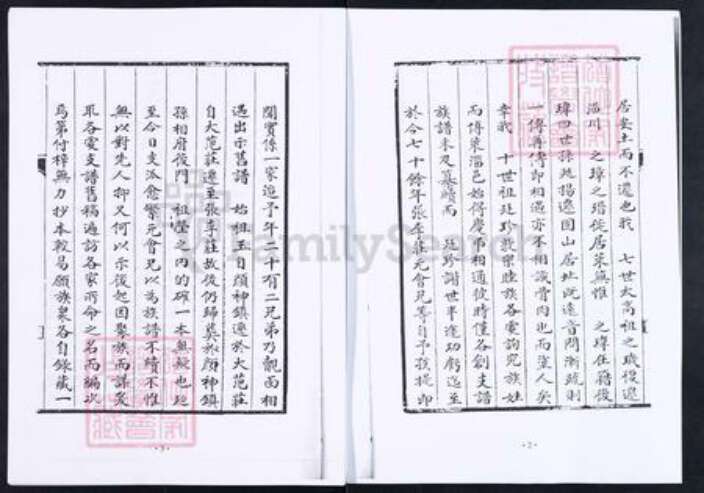 居安土而不還也我 七世太高祖之璣復遷
淄川 之璋之瑨徙居萊蕪惟 之瑋在籍後
瑋四世孫廷揚遷固山居址既遠音問漸疏則
一傳再傳即相遇亦不相識骨肉也而塗人矣
幸我 十世祖廷珍敦宗睦族各處詢究族姓
而博萊淄邑始得慶弔相通彼時僅各創支譜
族譜未及纂續而 廷珍謝世半途功虧迄至
於今七十餘年張李莊元會兄等自予孩提即
·2·
聞實係一家迨予年二十有二兄弟乃覿面相
遇出示舊譜 始祖玉自顏神鎮遷於大范莊
自大范莊遷至張李莊故後仍歸葬於顏神鎮
孫相府後門 祖塋之內的確一本無疑也延
至今日支派愈繁元會兄以為族譜不續不惟
無以對先人抑又何以示後起因聚族而謀
取各處支譜舊稿遍訪各家所命之名而編次
焉第付梓無力抄本較易願族衆各自錄藏一
·3·
FamilySearch